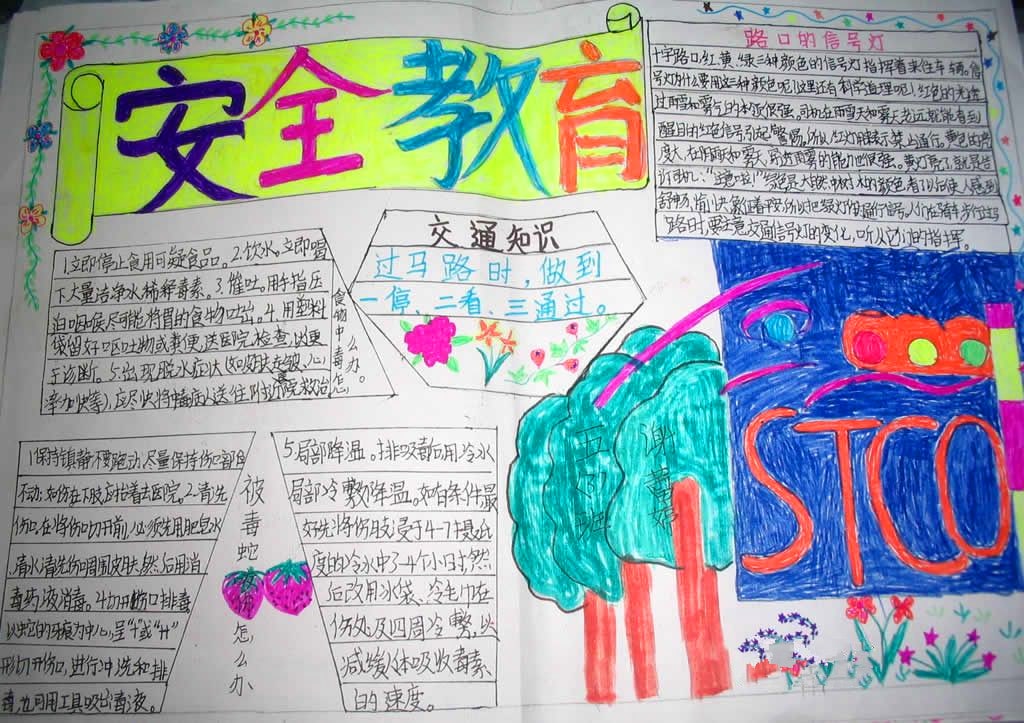 安全教育
路口的信号灯
十字路口,红、黄、绿三种颜色的信号灯指挥着来往车辆。信
号灯为什么要用这三种颜色呢,这里还有科学道理呢!红色的光穿
过雨雪和雾气的本领很强,
醒目的红色信号引起警惕。
舒畅、愉快、
路时,要注意交通信号灯的变化,听从它们的指挥。
交通知识
过马路时,做到
一停、二看、三通过。
1.立即停止食用可疑食品。2.饮水。立即喝
下大量洁净水,稀释毒素。3.催吐。用手指压
迫咽喉,尽可能将胃的食物吐出。4.用塑料
袋留好呕吐物或粪便,送医院检查,以便
于诊断。5.出现脱水症状(如皮肤起皱、心
率加快等),应尽快将中毒病人送往附近医院救治。
食物中毒怎
么办。
1.保持镇静,不要跑动,尽量保持伤口部位
不动:如伤在下肢,应抬着去医院。2.清洗
伤口。在将伤口切开前,必须先用肥皂水
清水清洗伤口周围皮肤,然后用消
毒药液消毒。4.切开伤口排毒
以蛇的牙痕为中心,呈“十”或“艹”
形切开伤口,进行冲洗和排
毒,也可用工具吸出毒液。
被毒蛇咬伤怎么办
5.局部降温。排吸毒后用冷水
局部冷敷降温。如有条件最
好先将伤肢浸于4-7摄氏
度的冷水中3-4个小时,然
后改用冰袋、冷毛巾在
伤处及四周冷敷,以
减缓人体吸收毒素
的速度。
五(3)班
谢
STCO